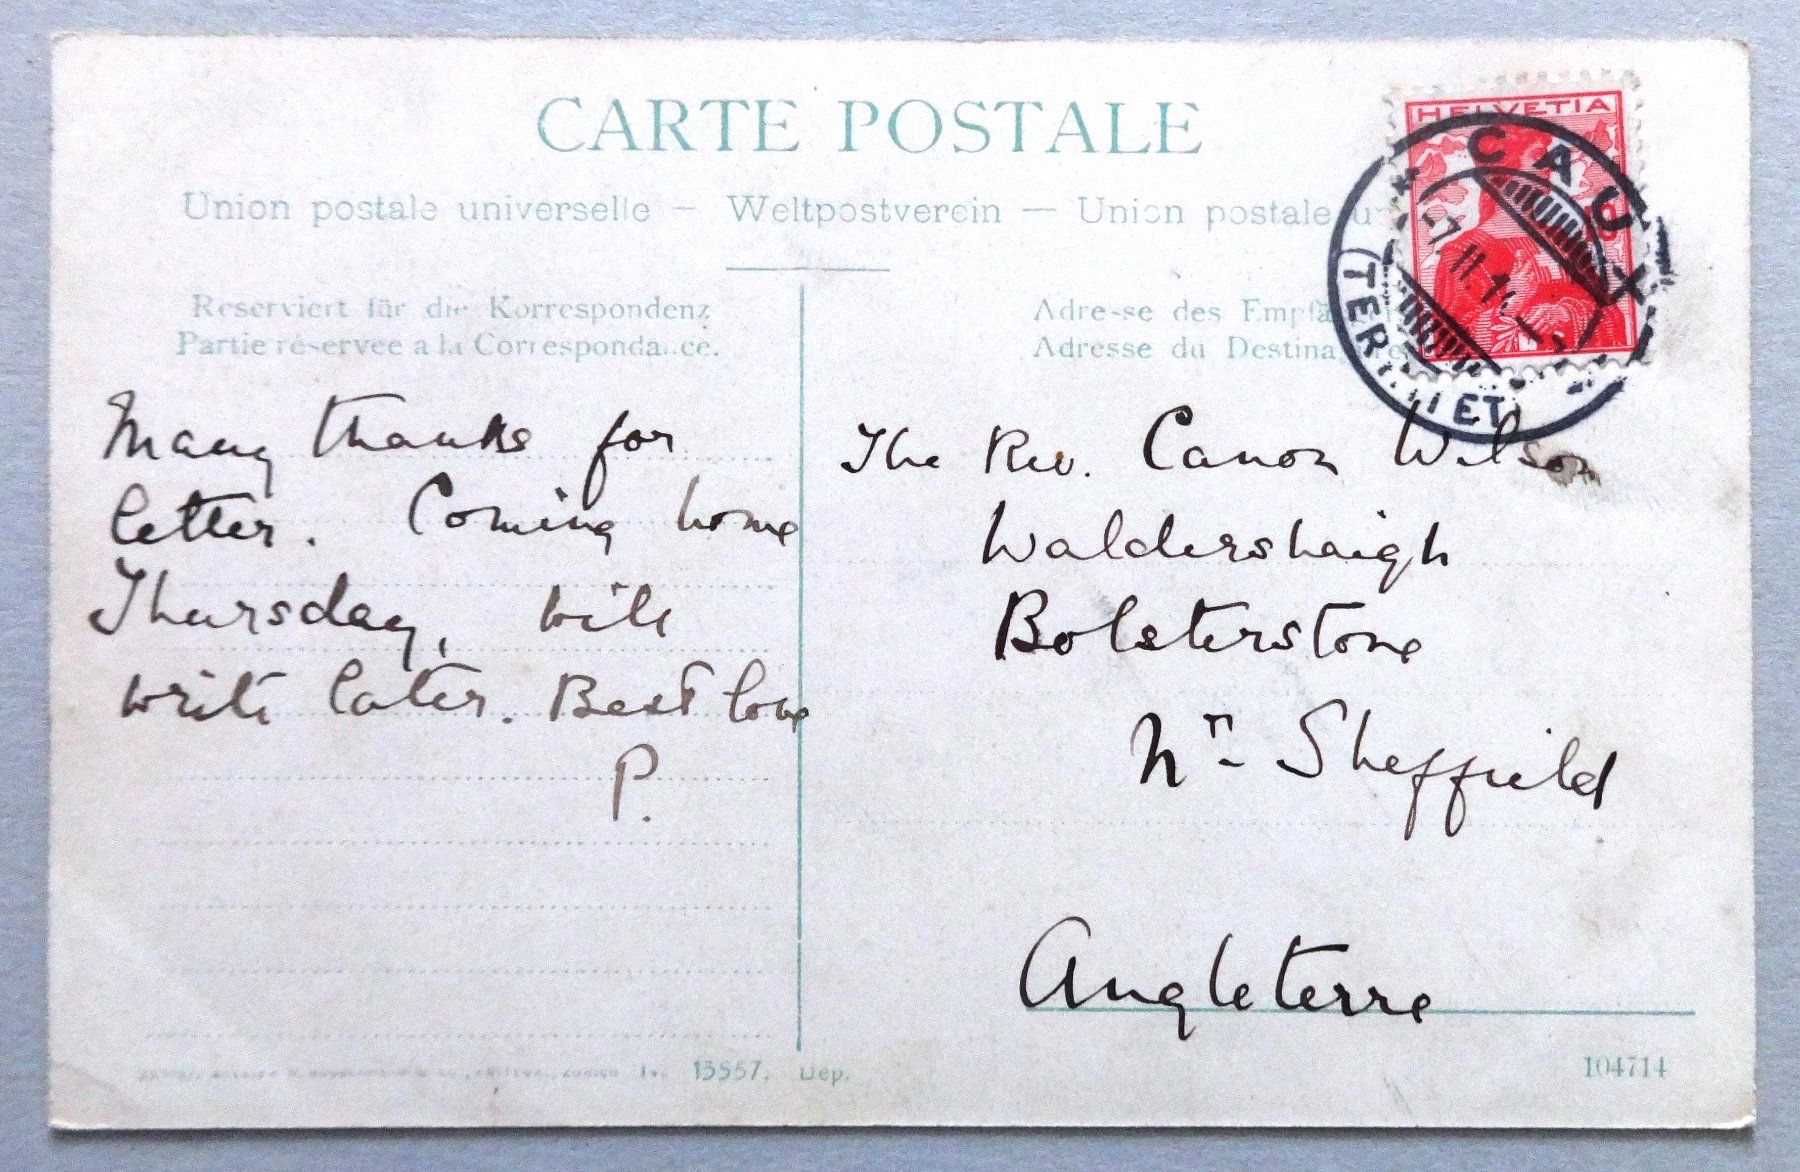 CARTE POSTALE
Union postale universelle — Weltpostverein — Union postale
HELVETIA
CAUX
-7.II.14
Reserviert für die Korrespondenz
Partie réservée a la Correspondance.
Adresse des
Adresse du
Many thanks for
letter. Coming home
Thursday, will
write later. Best love
P.
The Rev. Canon Wilson
Waldershaigh
Bolsterstone
Nr. Sheffield
Angleterre
13557. Dep.
104714